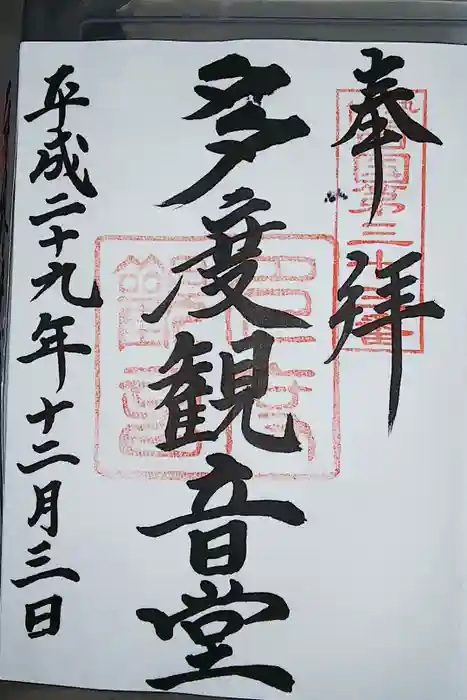 奉拝
多度観音堂
平成二十九年十二月三日